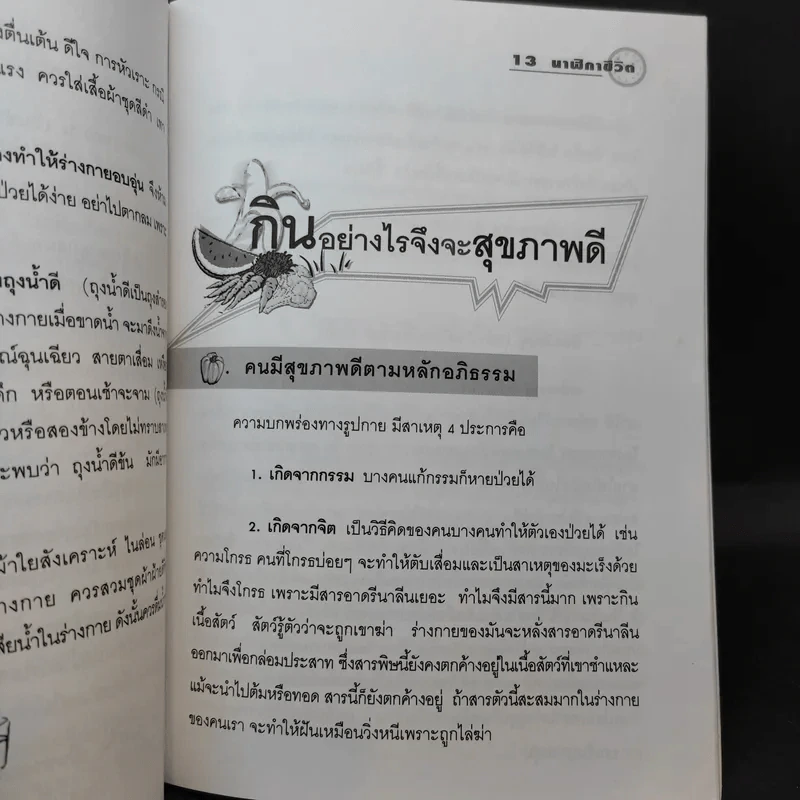 งตื่นเต้น ดีใจ การหัวเราะ
แรง ควรใส่เสื้อผ้าชุดสีดำ
องทำให้ร่างกายอบอุ่น จึง
ป่วยได้ง่าย อย่าไปตากลม เพราะ
ถุงน้ำดี (ถุงน้ำดีเป็นถุง
างกายเมื่อขาดน้ำ จะมาดึงน้ำ
ณ์ฉุนเฉียว สายตาเสื่อม
ดึก หรือตอนเช้าจะจาม
วหรือสองข้างโดยไม่ทราบ
ะพบว่า ถุงน้ำดีข้น มัก
ผ้าใยสังเคราะห์ ไนล่อน
างกาย ควรสวมชุดผ้าฝ้าย
สียน้ำในร่างกาย ดังนั้นควร
13 นาฬิกาชีวิต
กินอย่างไรจึงจะสุขภาพดี
คนมีสุขภาพดีตามหลักอภิธรรม
ความบกพร่องทางรูปกาย มีสาเหตุ 4 ประการคือ
1. เกิดจากกรรม บางคนแก้กรรมก็หายป่วยได้
2. เกิดจากจิต เป็นวิธีคิดของคนบางคนทำให้ตัวเองป่วยได้ เช่น
ความโกรธ คนที่โกรธบ่อยๆ จะทำให้ตับเสื่อมและเป็นสาเหตุของมะเร็งด้วย
ทำไมจึงโกรธ เพราะมีสารอาดรีนาลีนเยอะ ทำไมจึงมีสารนี้มาก เพราะกิน
เนื้อสัตว์ สัตว์รู้ตัวว่าจะถูกเขาฆ่า ร่างกายของมันจะหลั่งสารอาดรีนาลีน
ออกมาเพื่อกล่อมประสาท ซึ่งสารพิษนี้ยังคงตกค้างอยู่ในเนื้อสัตว์ที่เขาชำแหละ
แม้จะนำไปต้มหรือทอด สารนี้ก็ยังตกค้างอยู่ ถ้าสารตัวนี้สะสมมากในร่างกาย
ของคนเรา จะทำให้ฝันเหมือนวิ่งหนีเพราะถูกไล่ฆ่า